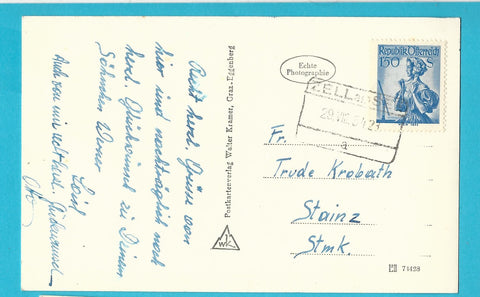 Recht herzl. Grüsse von
hier und nachträglich noch
herzl. Glückwünsch zu Deinem
Söhnchen Werner
Auch von mir recht herzl.
Otto
Postkartenverlag Walter Kramer, Graz-Eggenberg
WK
Echte
Photographie
Republik Österreich
150 S
ZELL am SEE
a
Fr.
Trude Krobath
Stainz
Stmk.
71428